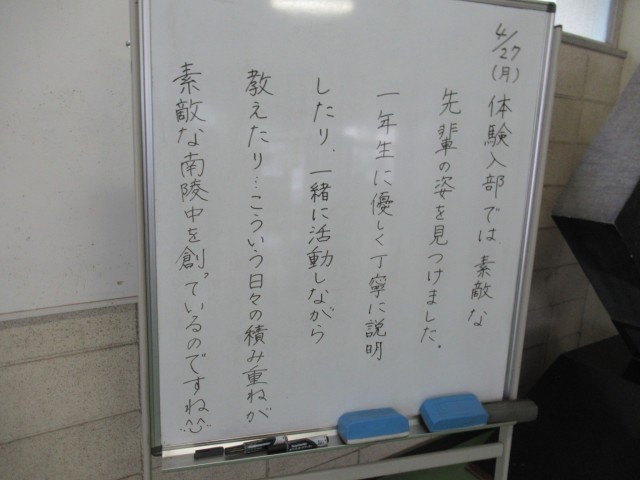 4/27(月) 体験入部では素敵な
先輩の姿を見つけました。
一年生に優しく丁寧に説明
したり、一緒に活動しながら
教えたり…こういう日々の積み重ねが
素敵な南陵中を創っているのですね